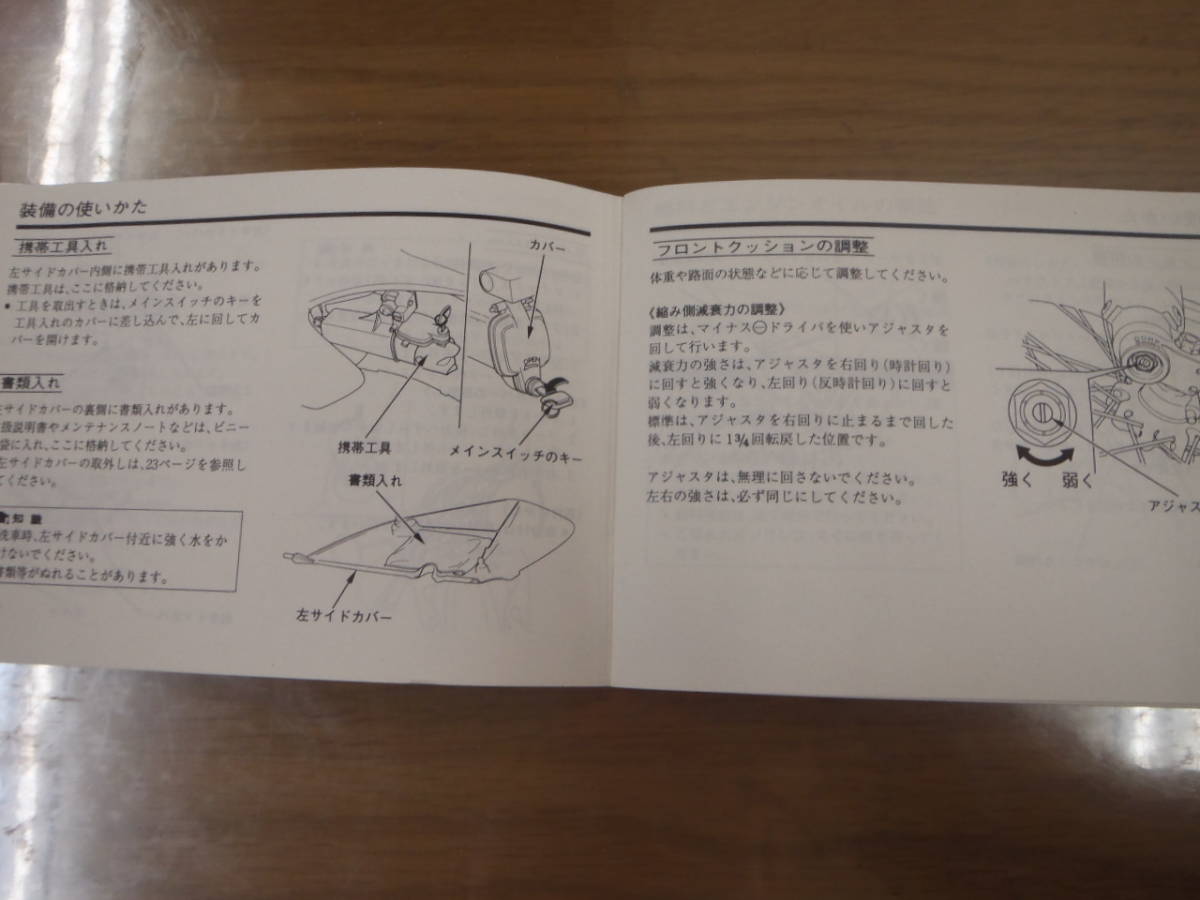 装備の使いかた
携帯工具入れ
左サイドカバー内側に携帯工具入れがあります。
携帯工具は、ここに格納してください。
● 工具を取出すときは、メインスイッチのキーを
工具入れのカバーに差し込んで、左に回してカ
バーを開けます。
書類入れ
左サイドカバーの裏側に書類入れがあります。
扱説明書やメンテナンスノートなどは、ビニー
袋に入れ、ここに格納してください。
左サイドカバーの取外しは、23ページを参照し
てください。
知識
洗車時、左サイドカバー付近に強く水をか
けないでください。
書類等がぬれることがあります。
カバー
携帯工具
メインスイッチのキー
書類入れ
左サイドカバー
フロントクッションの調整
体重や路面の状態などに応じて調整してください。
《縮み側減衰力の調整》
調整は、マイナス⊖ドライバを使いアジャスタを
回して行います。
減衰力の強さは、アジャスタを右回り(時計回り)
に回すと強くなり、左回り(反時計回り)に回すと
弱くなります。
標準は、アジャスタを右回りに止まるまで回した
後、左回りに1¾回転戻した位置です。
アジャスタは、無理に回さないでください。
左右の強さは、必ず同じにしてください。
強く 弱く
アジャスタ